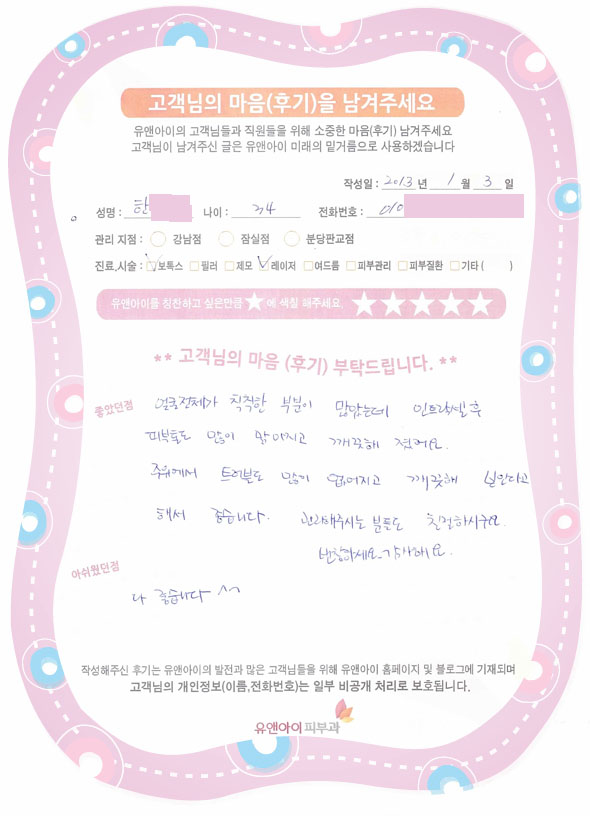 고객님의 마음(후기)을 남겨주세요
유앤아이의 고객님들과 직원들을 위해 소중한 마음(후기) 남겨주세요
고객님이 남겨주신 글은 유앤아이 미래의 밑거름으로 사용하겠습니다
작성일 : 2013 년 1 월 3 일
성명 : 한 나이 : 34 전화번호 : 010
관리 지점 : 강남점 잠실점 분당판교점
진료,시술 : 보톡스 필러 제모 레이저 여드름 피부관리 피부질환 기타 ( )
유앤아이를 칭찬하고 싶은만큼 ★ 에 색칠 해주세요. ★★★★★
** 고객님의 마음 (후기) 부탁드립니다. **
좋았던점 얼굴전체가 칙칙한 부분이 많았는데 인트라셀 후
피부톤도 많이 맑아지고 깨끗해 졌어요.
주위에서 트러블도 많이 없어지고 깨끗해 보인다고
해서 좋습니다. 관리해주시는 분들도 친절하시구요.
번창하세요. 감사해요.
아쉬웠던점
다 좋습니다 ^^
작성해주신 후기는 유앤아이의 발전과 많은 고객님들을 위해 유앤아이 홈페이지 및 블로그에 기재되며
고객님의 개인정보(이름,전화번호)는 일부 비공개 처리로 보호됩니다.
유앤아이피부과